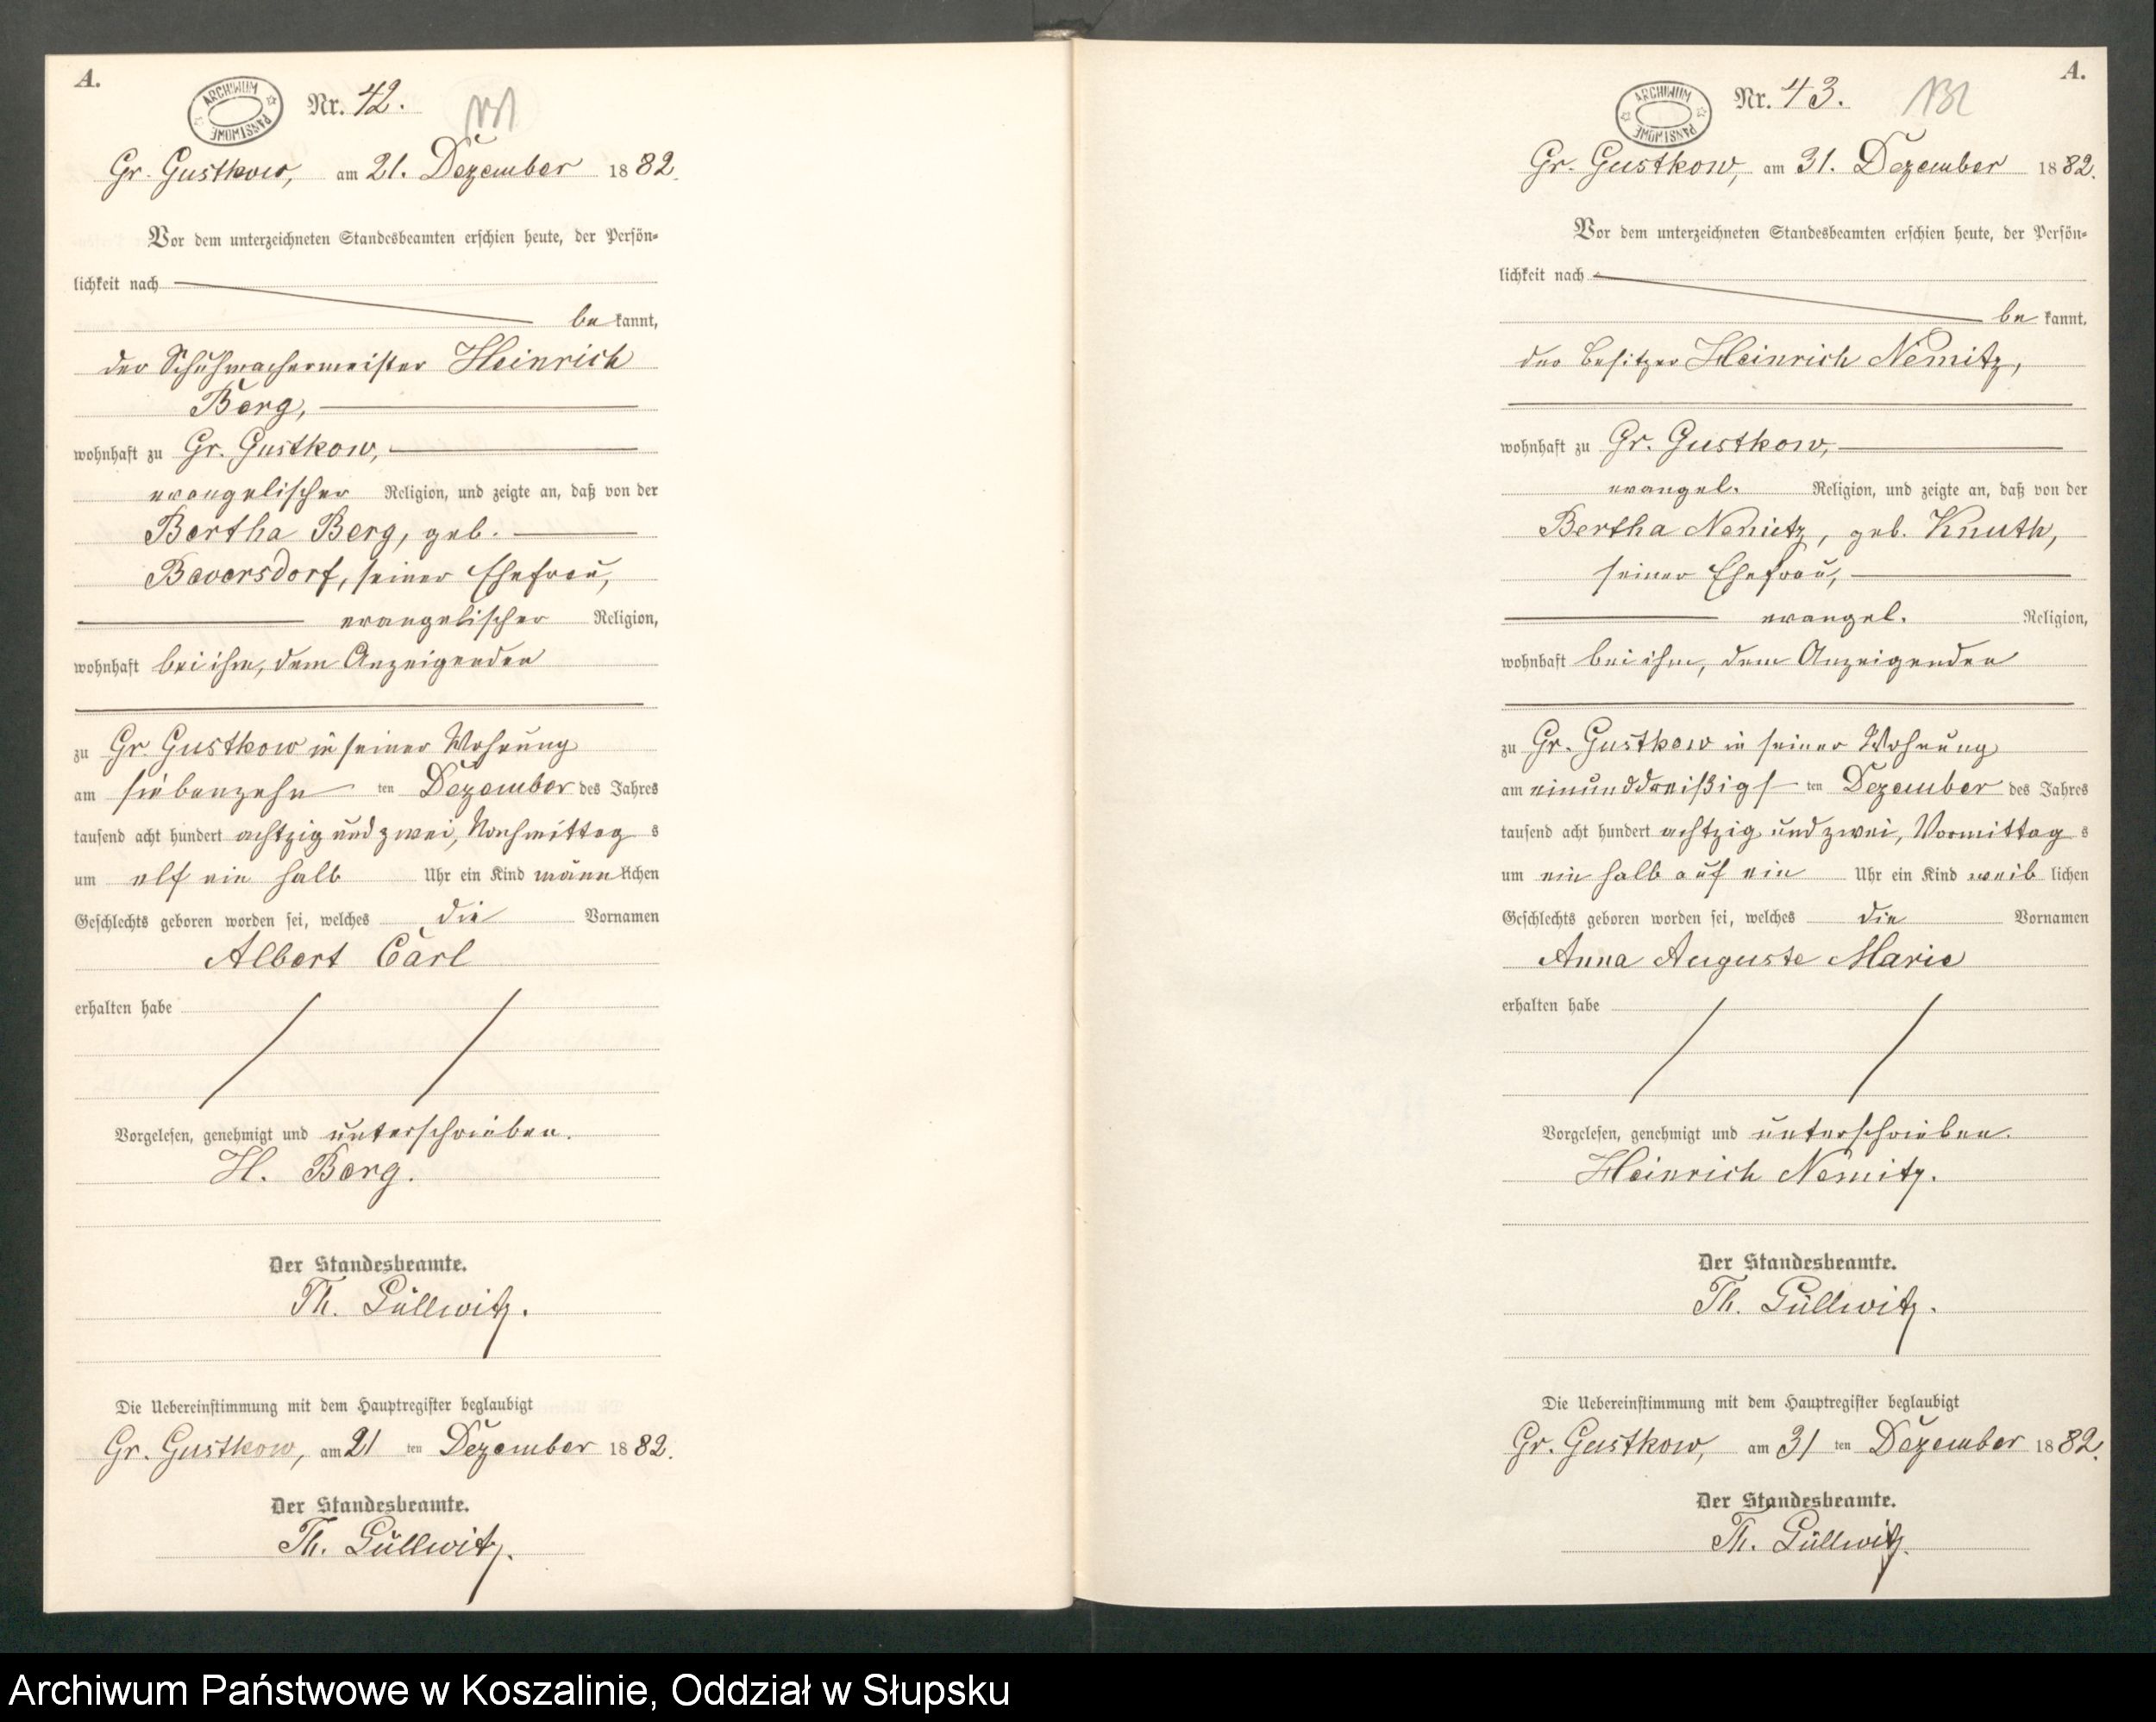 A.
ARCHIWUM PAŃSTWOWE
Nr. 42.
131
Gr. Gustkow, am 21. Dezember 1882.
Vor dem unterzeichneten Standesbeamten erschien heute, der Persön-
lichkeit nach
be kannt,
der Schuhmachermeister Heinrich
Berg,
wohnhaft zu Gr. Gustkow,
evangelischer Religion, und zeigte an, daß von der
Bertha Berg, geb.
Beversdorf, seiner Ehefrau,
evangelischer Religion,
wohnhaft bei ihm, dem Anzeigenden
zu Gr. Gustkow in seiner Wohnung
am siebenzehn ten Dezember des Jahres
tausend acht hundert achtzig und zwei, Nachmittag s
um elf ein halb Uhr ein Kind männlichen
Geschlechts geboren worden sei, welches die Vornamen
Albert Carl
erhalten habe
Vorgelesen, genehmigt und unterschrieben.
H. Berg.
Der Standesbeamte.
Th. Güllwitz.
Die Uebereinstimmung mit dem Hauptregister beglaubigt
Gr. Gustkow, am 21 ten Dezember 1882.
Der Standesbeamte.
Th. Güllwitz.
A.
ARCHIWUM PAŃSTWOWE
Nr. 43.
132
Gr. Gustkow, am 31. Dezember 1882.
Vor dem unterzeichneten Standesbeamten erschien heute, der Persön-
lichkeit nach
be kannt,
der Besitzer Heinrich Nemitz,
wohnhaft zu Gr. Gustkow,
evangel. Religion, und zeigte an, daß von der
Bertha Nemitz, geb. Knuth,
seiner Ehefrau,
evangel. Religion,
wohnhaft bei ihm, dem Anzeigenden
zu Gr. Gustkow in seiner Wohnung
am einunddreißigs ten Dezember des Jahres
tausend acht hundert achtzig und zwei, Vormittag s
um ein halb auf ein Uhr ein Kind weib lichen
Geschlechts geboren worden sei, welches die Vornamen
Anna Auguste Marie
erhalten habe
Vorgelesen, genehmigt und unterschrieben.
Heinrich Nemitz.
Der Standesbeamte.
Th. Güllwitz.
Die Uebereinstimmung mit dem Hauptregister beglaubigt
Gr. Gustkow, am 31 ten Dezember 1882.
Der Standesbeamte.
Th. Güllwitz.
Archiwum Państwowe w Koszalinie, Oddział w Słupsku